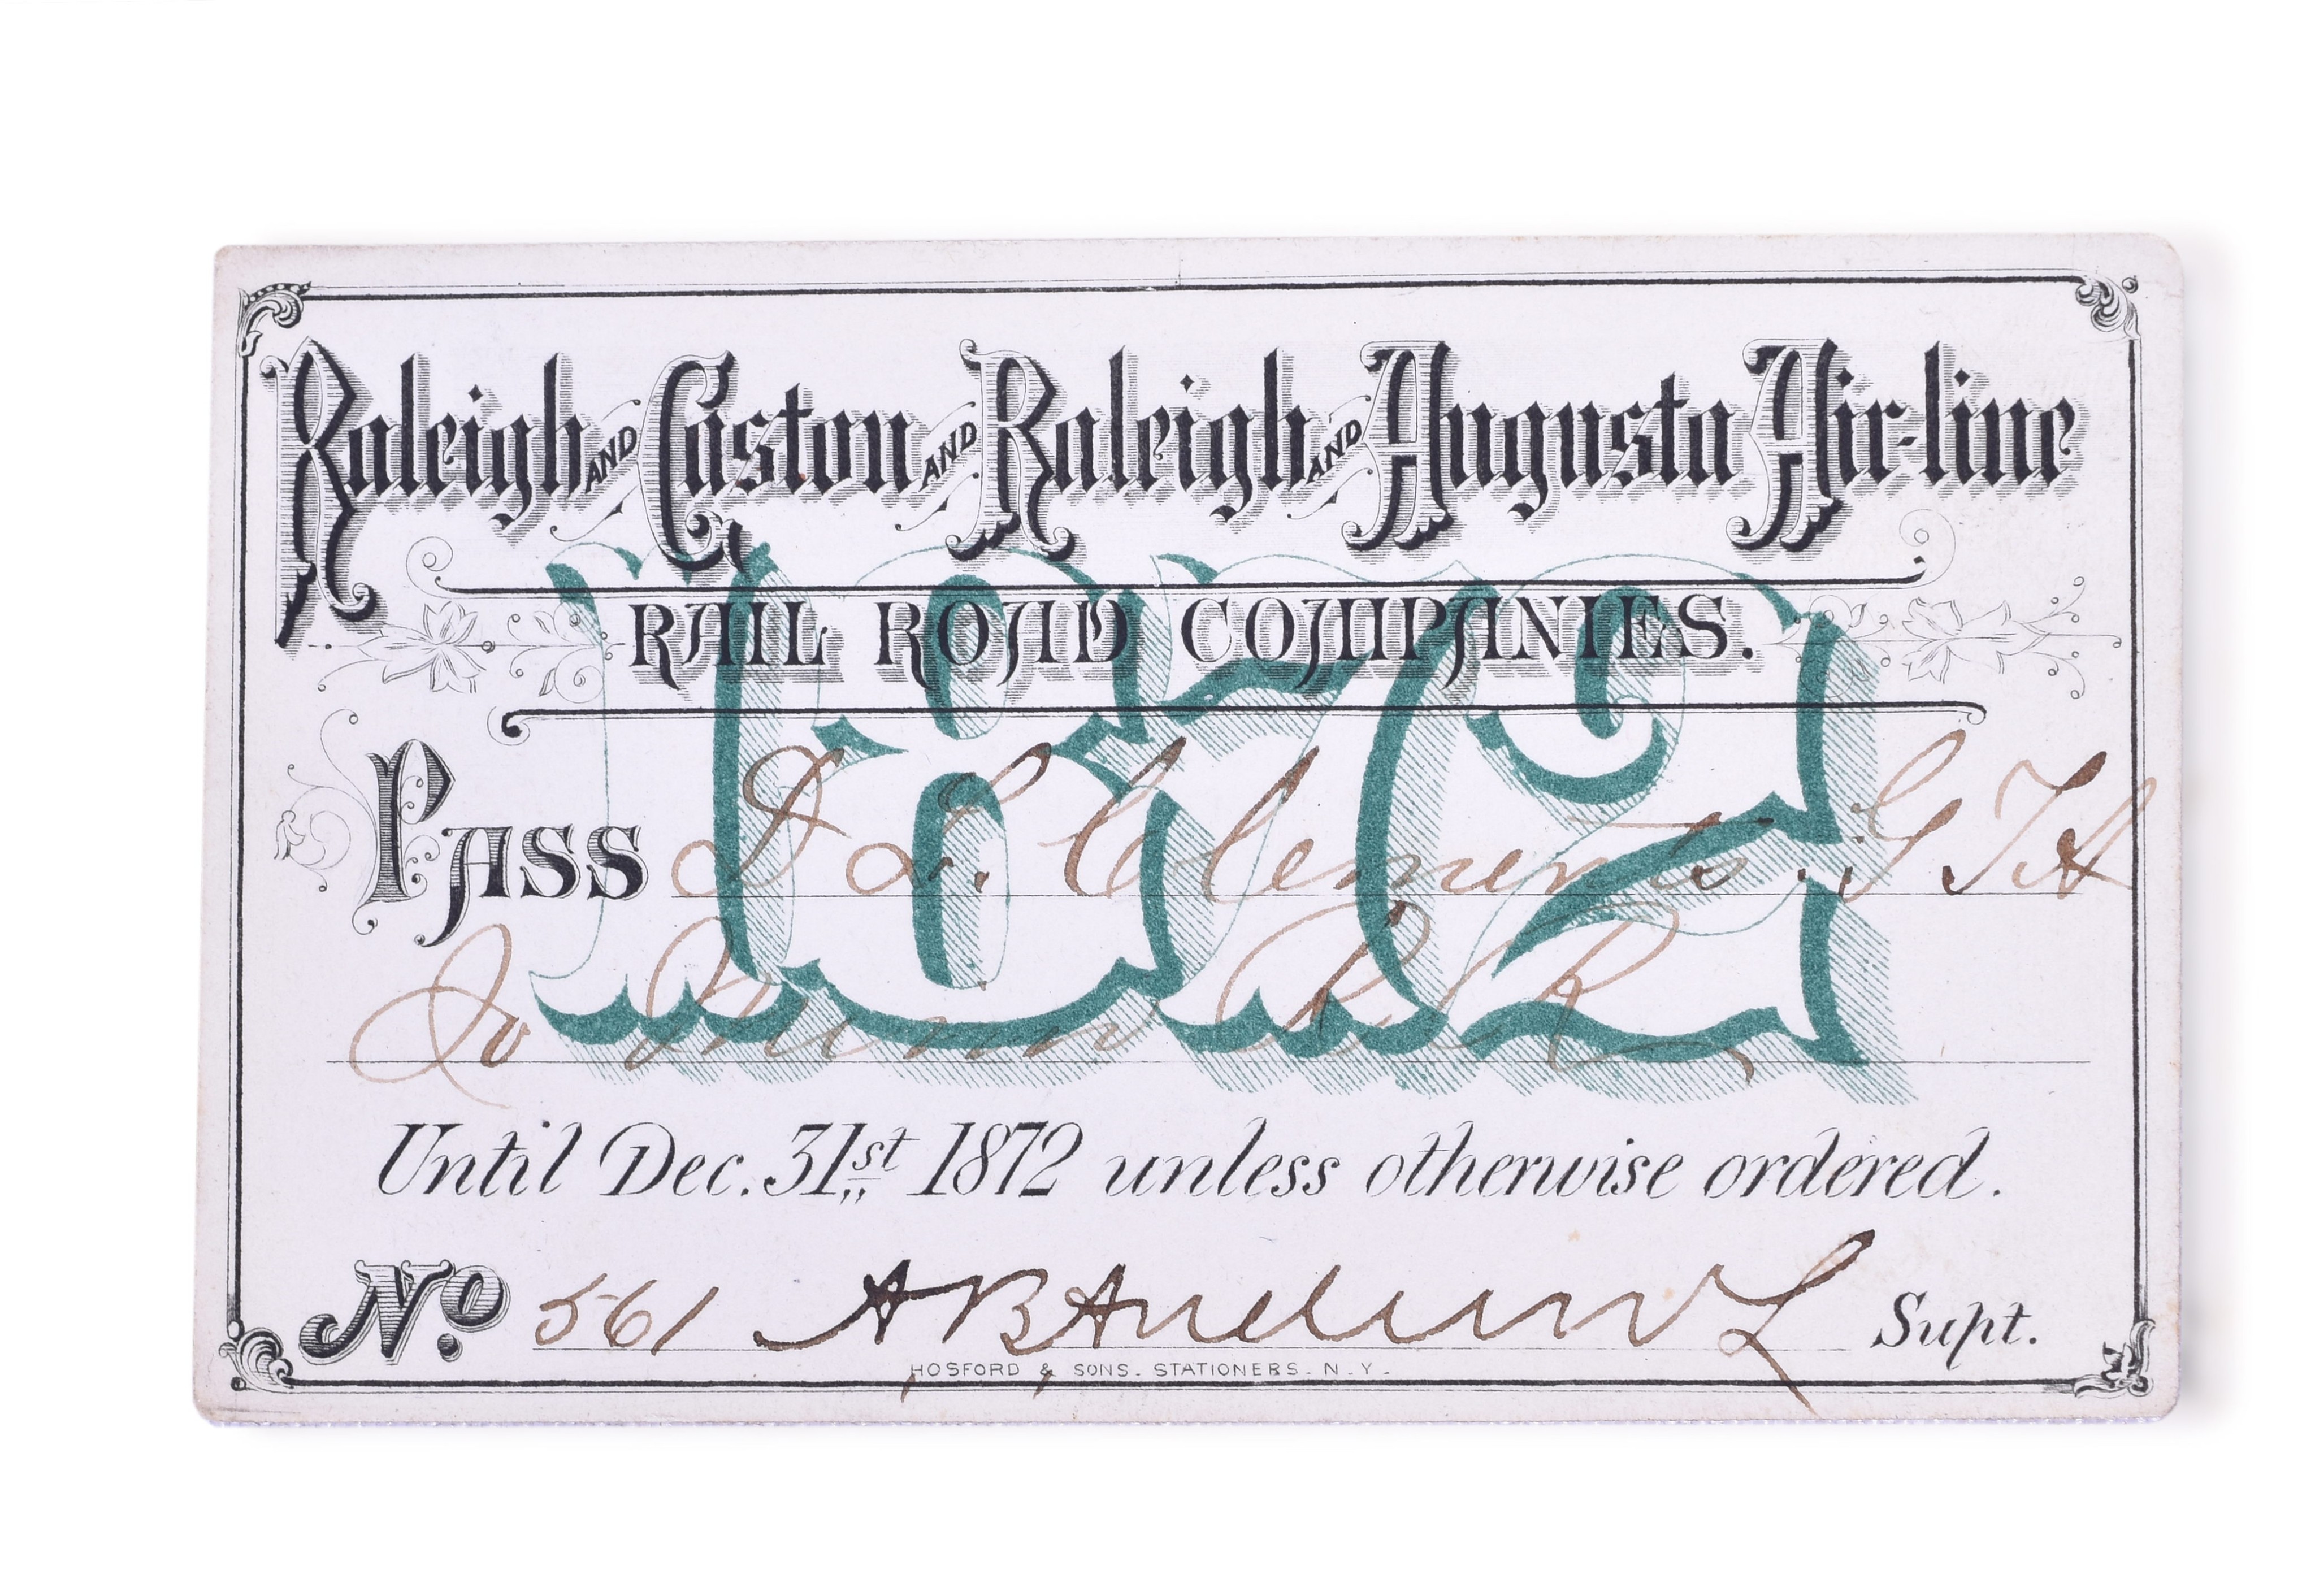 Raleigh AND Gaston AND Raleigh AND Augusta Air-line
RAIL ROAD COMPANIES.
1872
PASS D L. Clements. G T A
R R
Until Dec. 31st 1872 unless otherwise ordered.
No. 561 A B Andrews Supt.
HOSFORD & SONS. STATIONERS. N.Y.